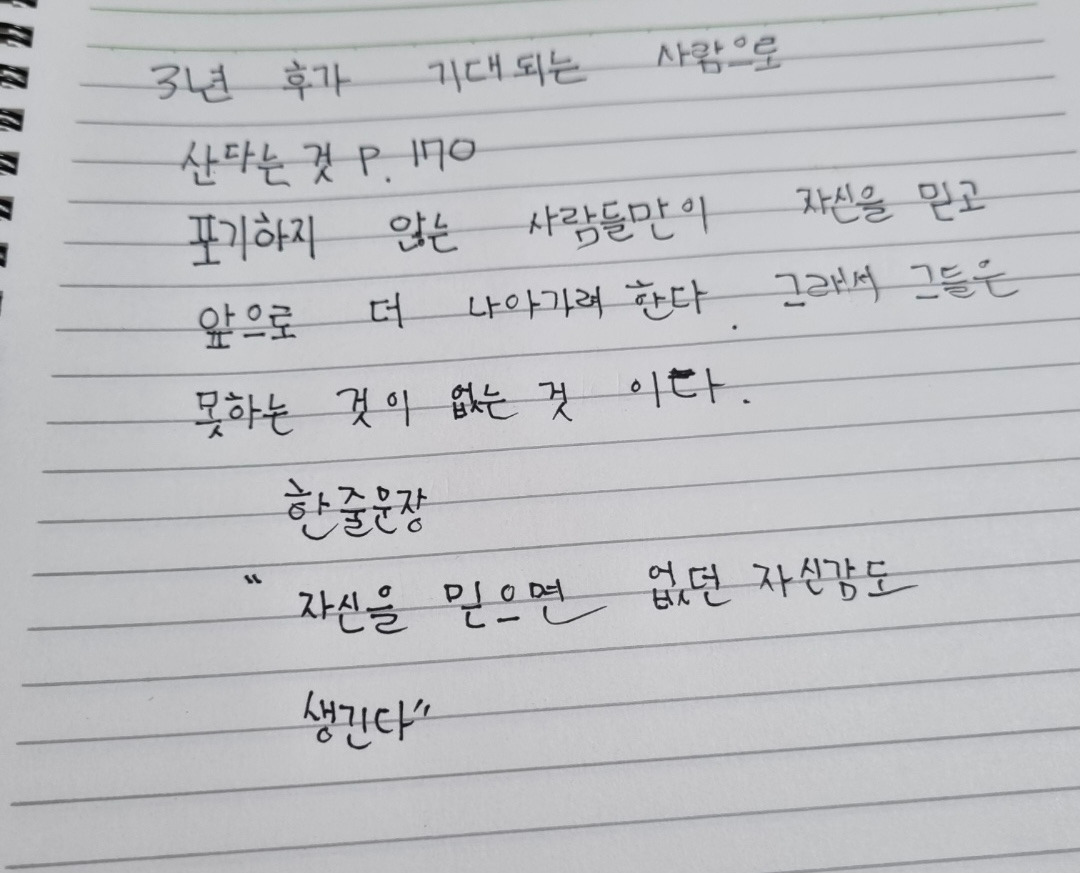 3년 후가 기대되는 사람으로
산다는 것 P. 170
포기하지 않는 사람들만이 자신을 믿고
앞으로 더 나아가려 한다. 그래서 그들은
못하는 것이 없는 것 이다.
한줄문장
“자신을 믿으면 없던 자신감도
생긴다”